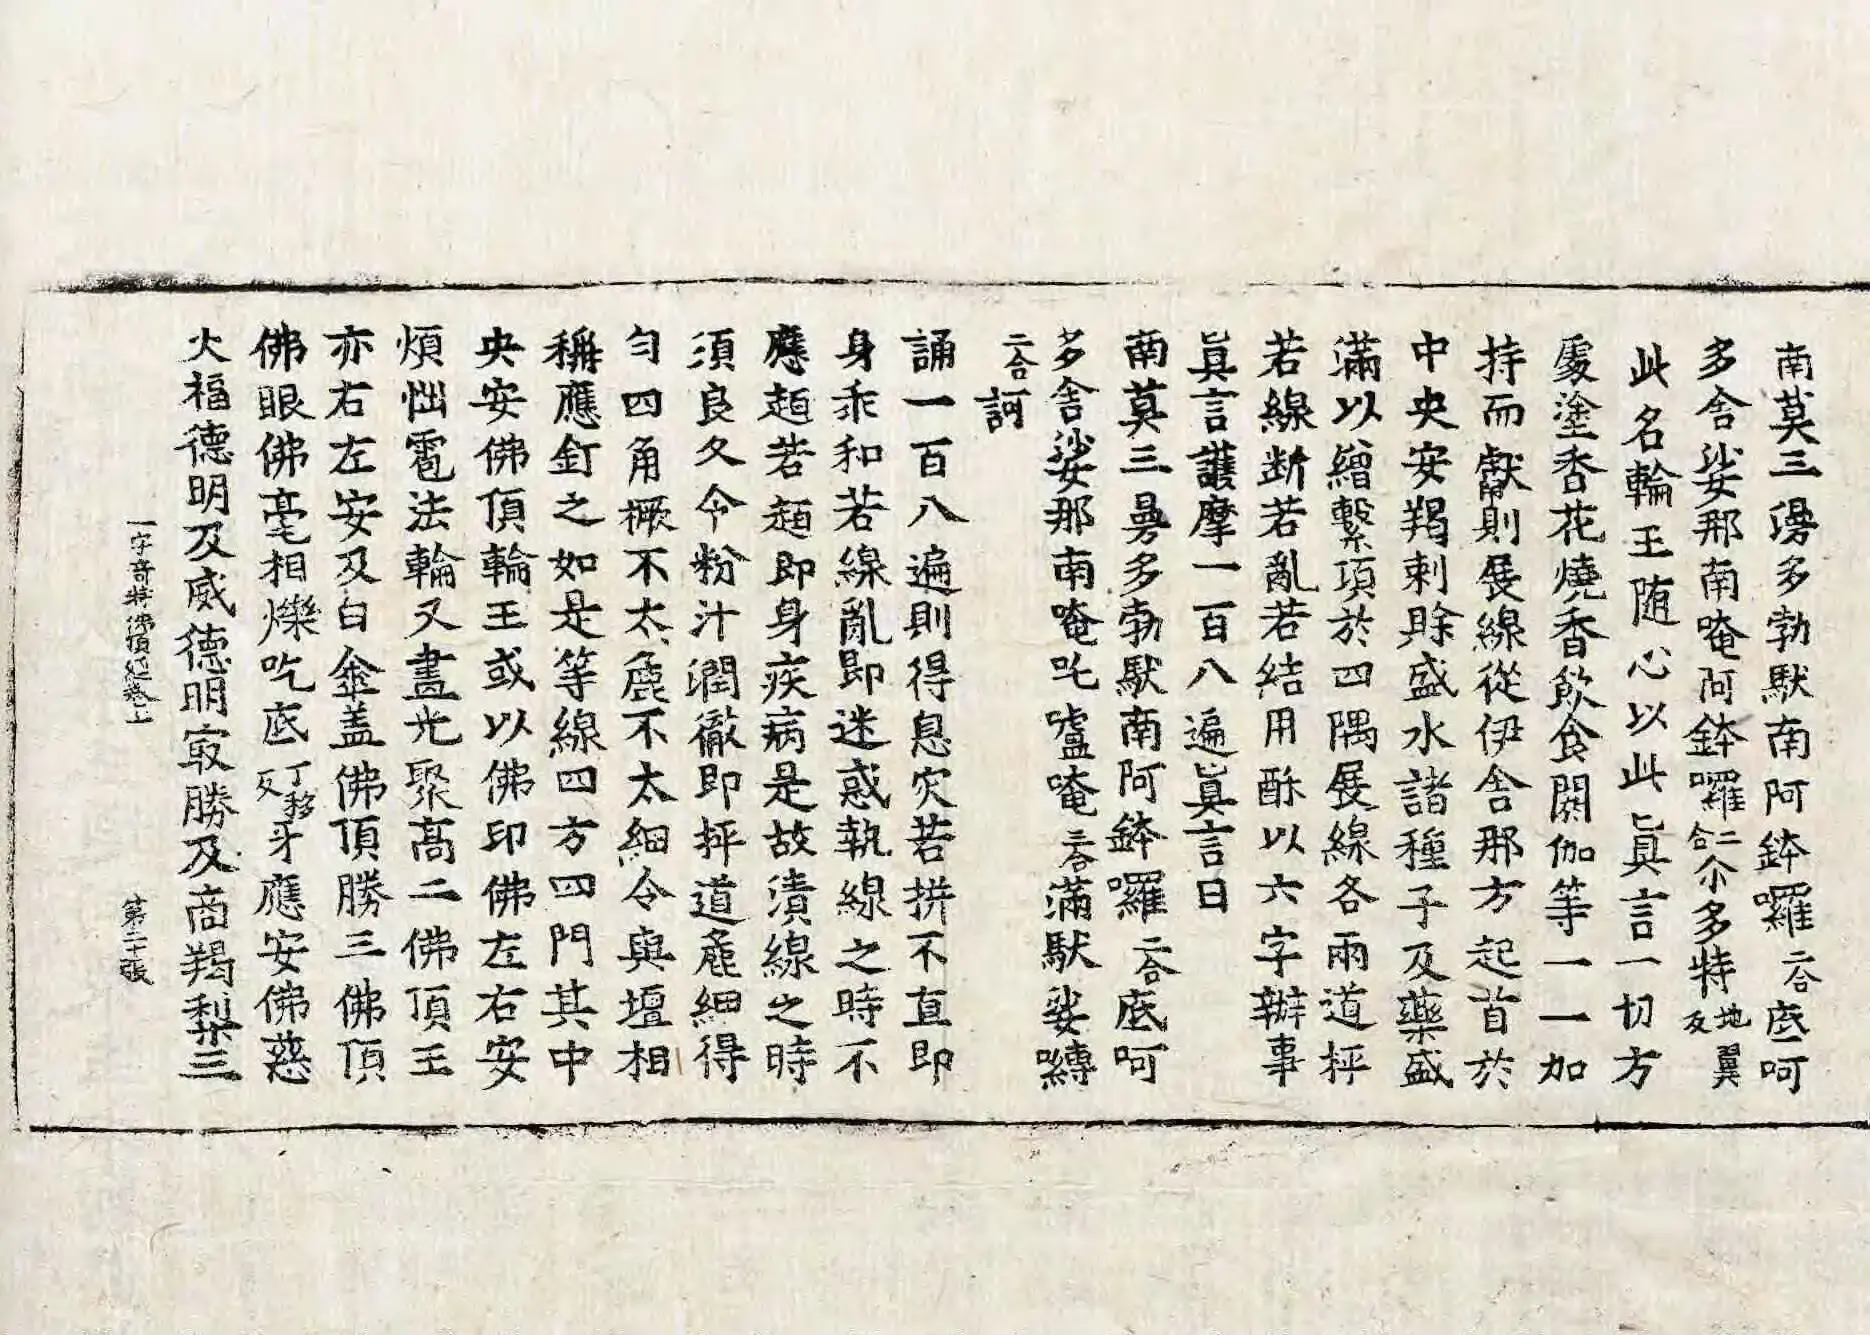 南莫三漫多勃馱南阿鉢囉二合底呵
多舍娑那南唵阿鉢囉二合尒多特地反翼
此名輪王随心以此眞言一切方
處塗香花燒香飲食閼伽等一一加
持而獻則展線從伊舍那方起首於
中央安羯剌賖盛水諸種子及藥盛
滿以繒繫項於四隅展線各兩道抨
若線斷若亂若結用酥以六字辦事
眞言護摩一百八遍眞言曰
南莫三曼多勃馱南阿鉢囉二合底呵
多舍娑那南唵吒嚧唵三合滿馱娑嚩
二合訶
誦一百八遍則得息灾若拼不直即
身乖和若線亂即迷惑執線之時不
應趂若趂即身疾病是故漬線之時
須良久令粉汁潤徹即抨道麁細得
勻四角橛不太麁不太細令與壇相
稱應釘之如是等線四方四門其中
央安佛頂輪王或以佛印佛左右安
煩惱雹法輪又畫光聚髙二佛頂王
亦右左安及白傘盖佛頂勝三佛頂
佛眼佛毫相爍吃底丁移反牙應安佛慈
大福德明及威德明㝡勝及商羯梨三
一字奇特佛頂経卷上　第二十張